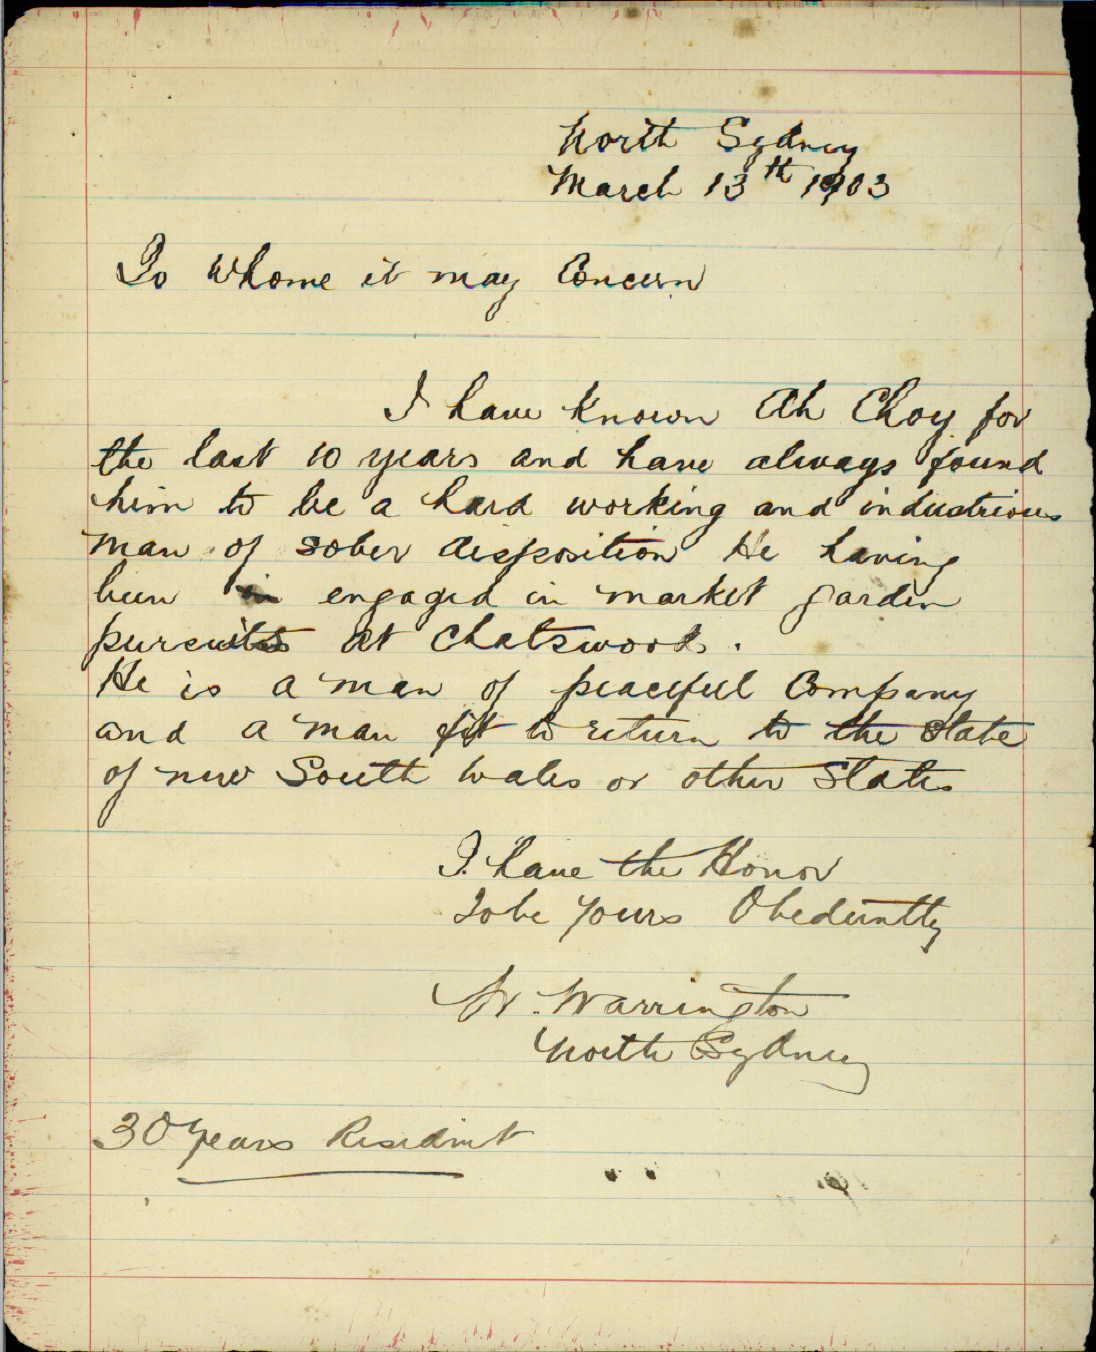 North Sydney
March 13th 1903
To Whome it may Concern
I have known Ah Choy for
the last 10 years and have always found
him to be a hard working and industrious
man of sober disposition He having
been engaged in market garden
pursuits at Chatswood.
He is a man of peacefull Company
and a man fit to return to the State
of new South Wales or other States
I have the Honor
To be Yours Obediently
W. Warrington
North Sydney
30 Years Resident